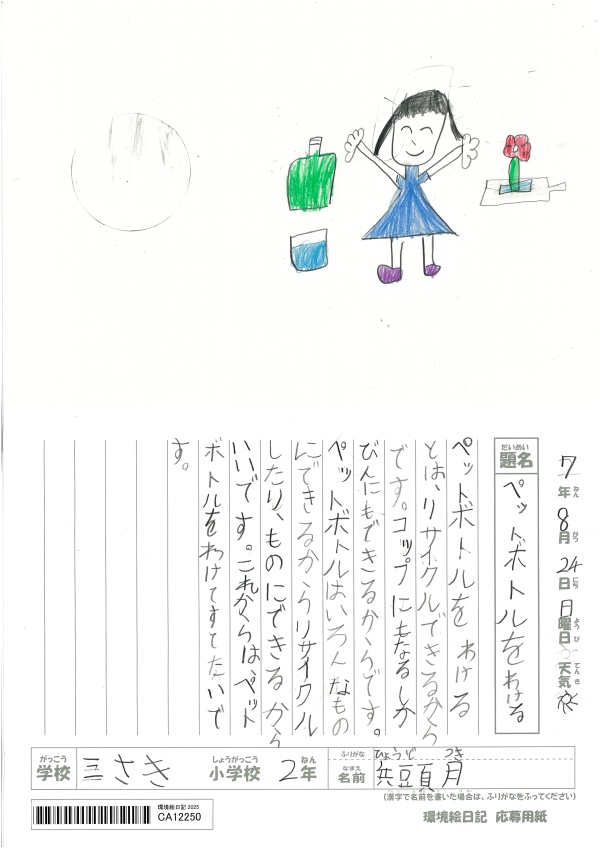 7年ねん8月がつ24日にち日曜日ようび天気てんき
題名だいめい ペットボトルをわける
ペットボトルを わける
とは、リサイクルできるから
です。コップにもなるしか
びんにもできるからです。
ペットボトルはいろんなもの
にできるからリサイクル
したり、ものにできるから
いいです。これからは、ペット
ボトルをわけてすてたいで
す。
がっこう 学校 三さき 小学校しょうがっこう 2年ねん
ふりがな ひょうどう つき
名前なまえ 兵頭 月
(漢字で名前を書いた場合は、ふりがなをふってください)
環境絵日記 2025
CA12250
環境絵日記 応募用紙